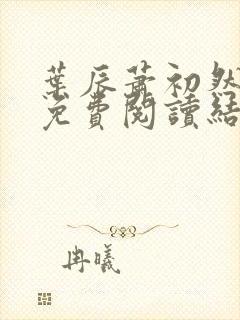 葉辰蕭初然
免費閱讀結
冉曦